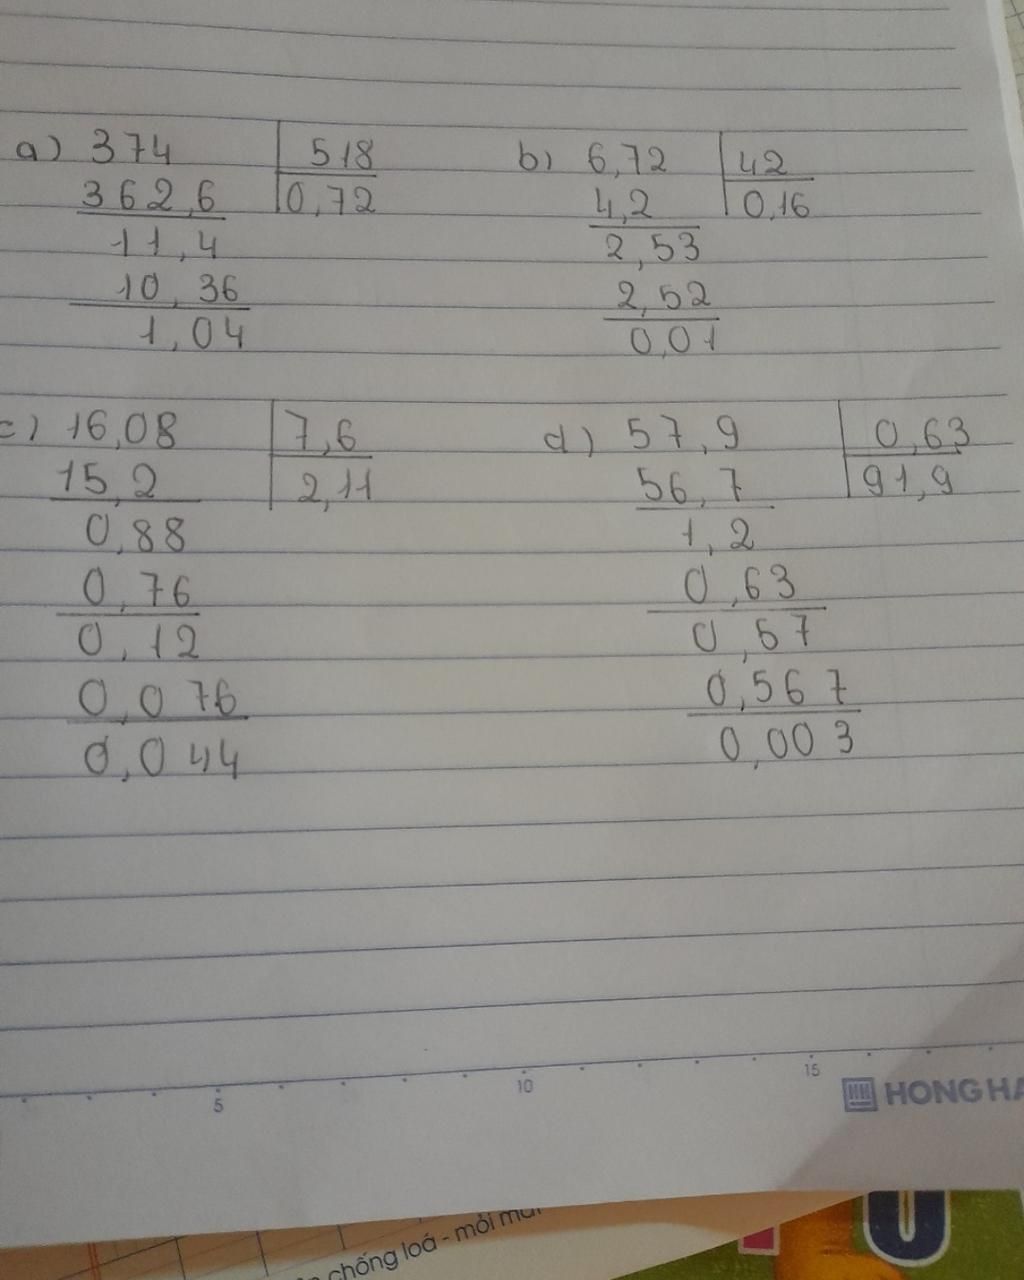 a) 374 518
362,6 0,72
11,4
10,36
1,04
b) 6,72 42
4,2 0,16
2,53
2,52
0,01
c) 16,08 7,6
15,2 2,11
0,88
0,76
0,12
0,076
0,044
d) 57,9 0,63
56,7 91,9
1,2
0,63
0,57
0,567
0,003
5 10 15
HONG HA
chống loá - mỏi